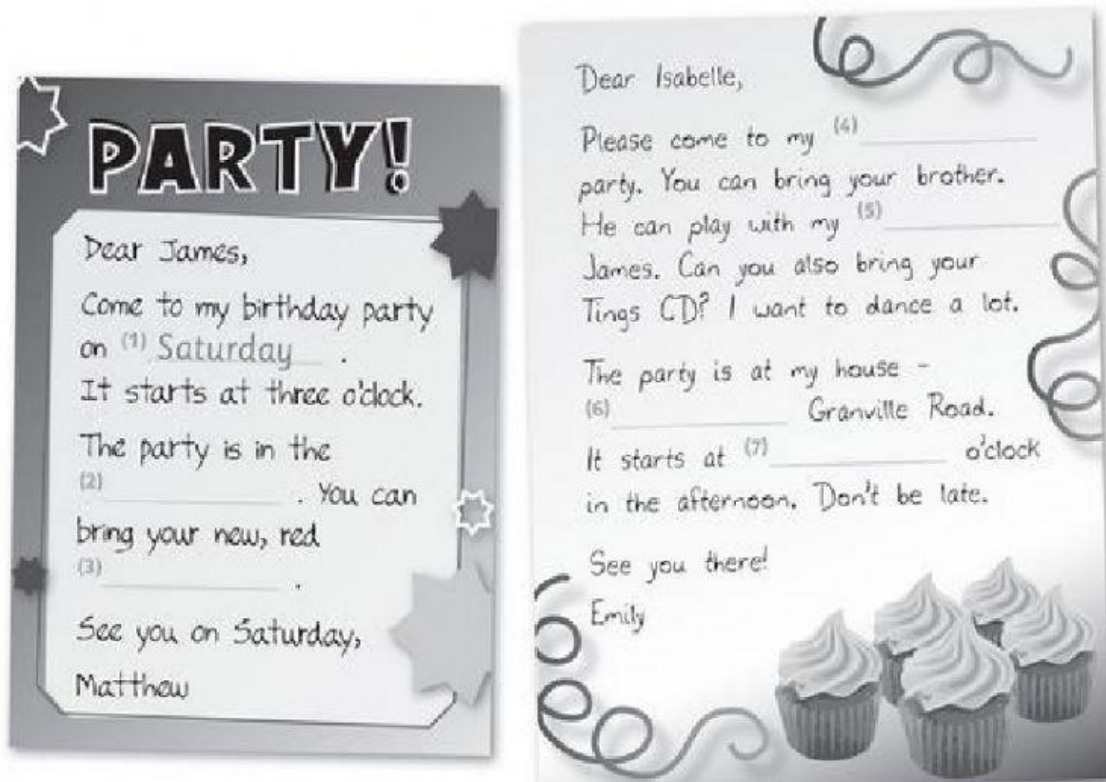 PARTY!
Dear James,
Come to my birthday party
on (1) Saturday .
It starts at three o'clock.
The party is in the
(2) . You can
bring your new, red
(3) .
See you on Saturday,
Matthew
Dear Isabelle,
Please come to my (4)
party. You can bring your brother.
He can play with my (5)
James. Can you also bring your
Tings CD? I want to dance a lot.
The party is at my house -
(6) Granville Road.
It starts at (7) o'clock
in the afternoon. Don't be late.
See you there!
Emily